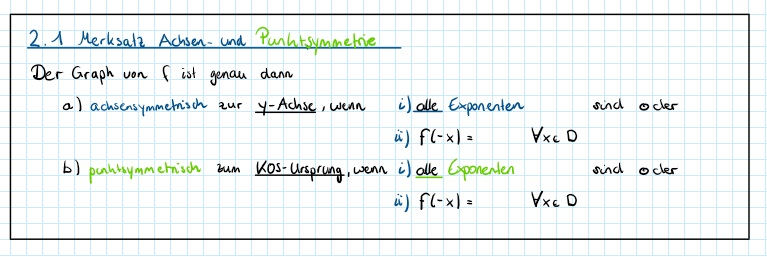 2.1 Merksatz Achsen- und Punktsymmetrie
Der Graph von f ist genau dann
a) achsensymmetrisch zur y-Achse, wenn i) alle Exponenten sind oder
ii) f(-x) = ∀x∈D
b) punktsymmetrisch zum KOS-Ursprung, wenn i) alle Exponenten sind oder
ii) f(-x) = ∀x∈D